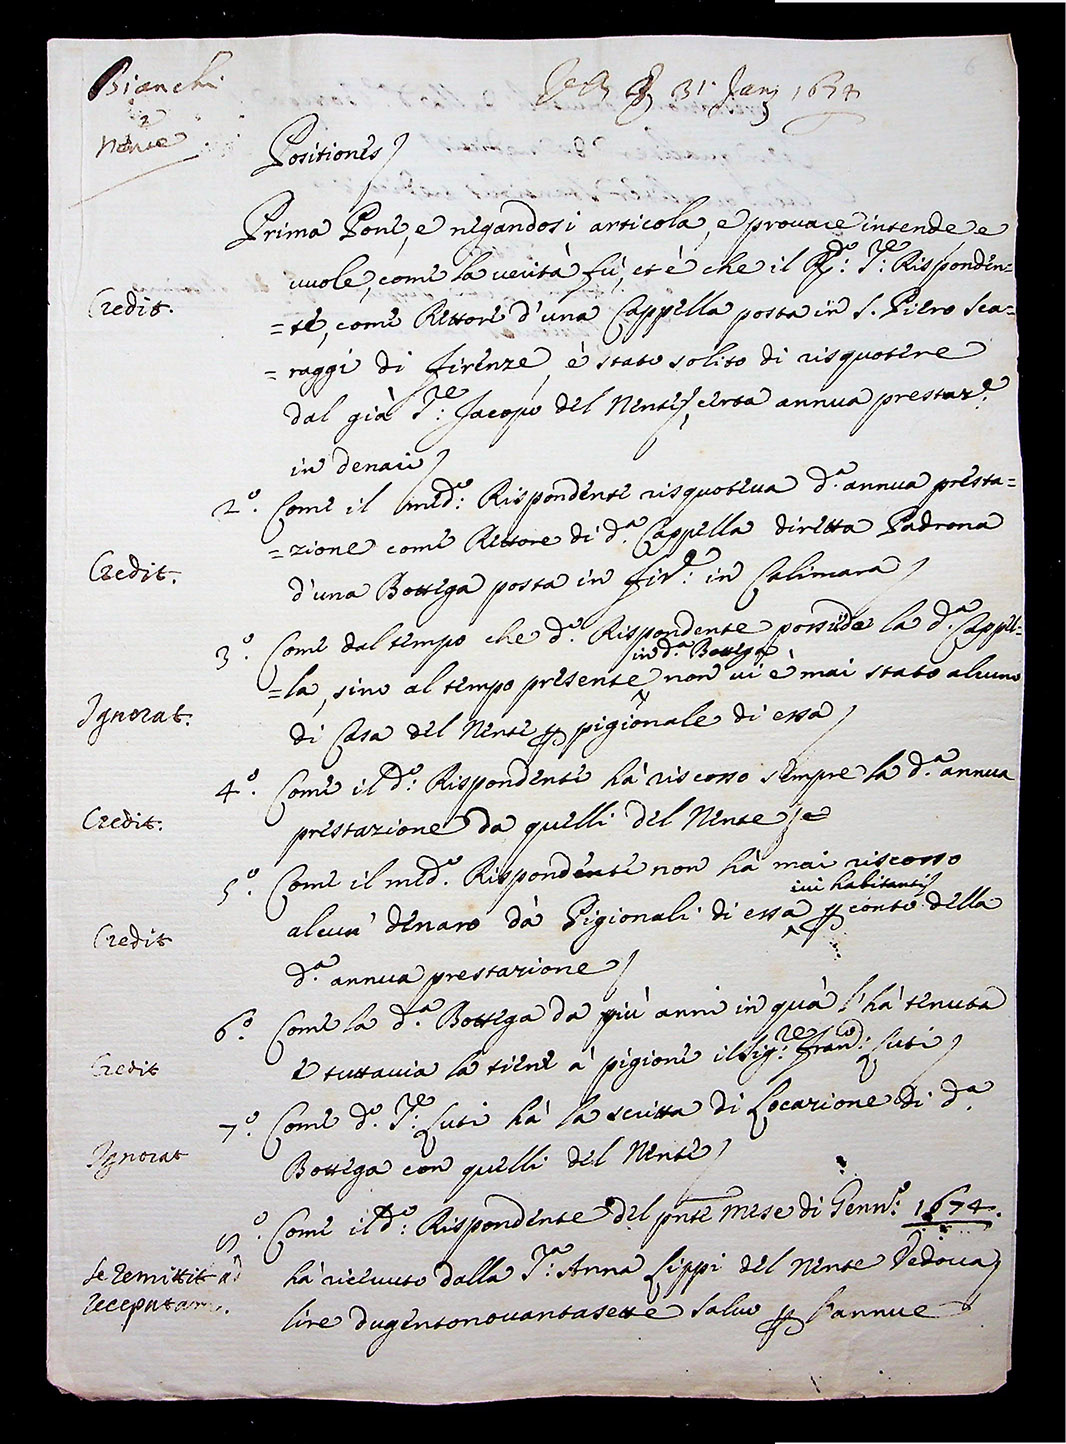 Bianchi
e
Nente
31 Jan 1674
Positiones
Prima Pone, e negandosi articola, e provare intende e
vuole, come la verità fù, et è che il R.do S.re Responden=
Credit.
=te, come Rettore d'una Cappella posta in S. Piero Sca=
=raggi di Firenze, è stato solito di risquotere
dal già S.re Jacopo del Nente certa annua prestaz.e
in denari
2.o Come il med.o Rispondente risquoteva d.a annua presta=
=zione come Rettore di d.a Cappella diretta Padrona
Credit.
d'una Bottega posta in Fir.e in Calimara
3.o Come dal tempo che d.o Rispondente possiede la d.a Cappel=
in d.a Bottega
=la, sino al tempo presente non vi è mai stato alcuno
Ignorat.
di Casa del Nente p pigionale di essa
4.o Come il d.o Rispondente hà riscosso sempre la d.a annua
Credit.
prestazione da quelli del Nente
5.o Come il med.o Rispondente non hà mai riscosso
ivi habitanti
alcun denaro dà Pigionali di essa p conto della
Credit
d.a annua prestazione
6.o Come la d.a Bottega da più anni in quà l'hà tenuta
Credit
e tuttavia la tiene à pigione il Sig.re Fran.co Luti
7.o Come d.o S.re Luti hà la scritta di Locazione di d.a
Ignorat
Bottega con quelli del Nente
8.o Come il d.o Rispondente del pnte Mese di Genn.o 1674.
Se remittit ad
hà ricevuto dalla S.ra Anna Lippi del Nente Vedova
receputam.
lire dugentonovantasette salvo p l'annue